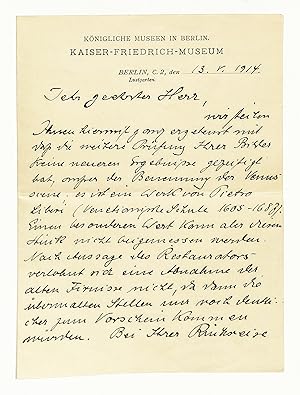 KÖNIGLICHE MUSEEN IN BERLIN.
KAISER-FRIEDRICH-MUSEUM
BERLIN, C. 2, den 13. V. 1914.
Lustgarten
Sehr geehrter Herr,
wir teilen
Ihnen hiermit ganz ergebenst mit
daß die weitere Prüfung Ihres Bildes
keine neueren Ergebnisse gezeitigt
hat, außer der Benennung der Venus-
scene. es ist ein Werk von Pietro
Liberi (Venetianische Schule 1605-1687).
Einen besonderen Wert kann aber diesem
Stück nicht beigemessen werden.
Nach Aussage des Restaurators
verlohnt sich eine Abnahme des
alten Firnisses nicht, da dann die
übermalten Stellen nur noch deutli-
cher zum Vorschein kommen
würden. Bei Ihrer Rückreise